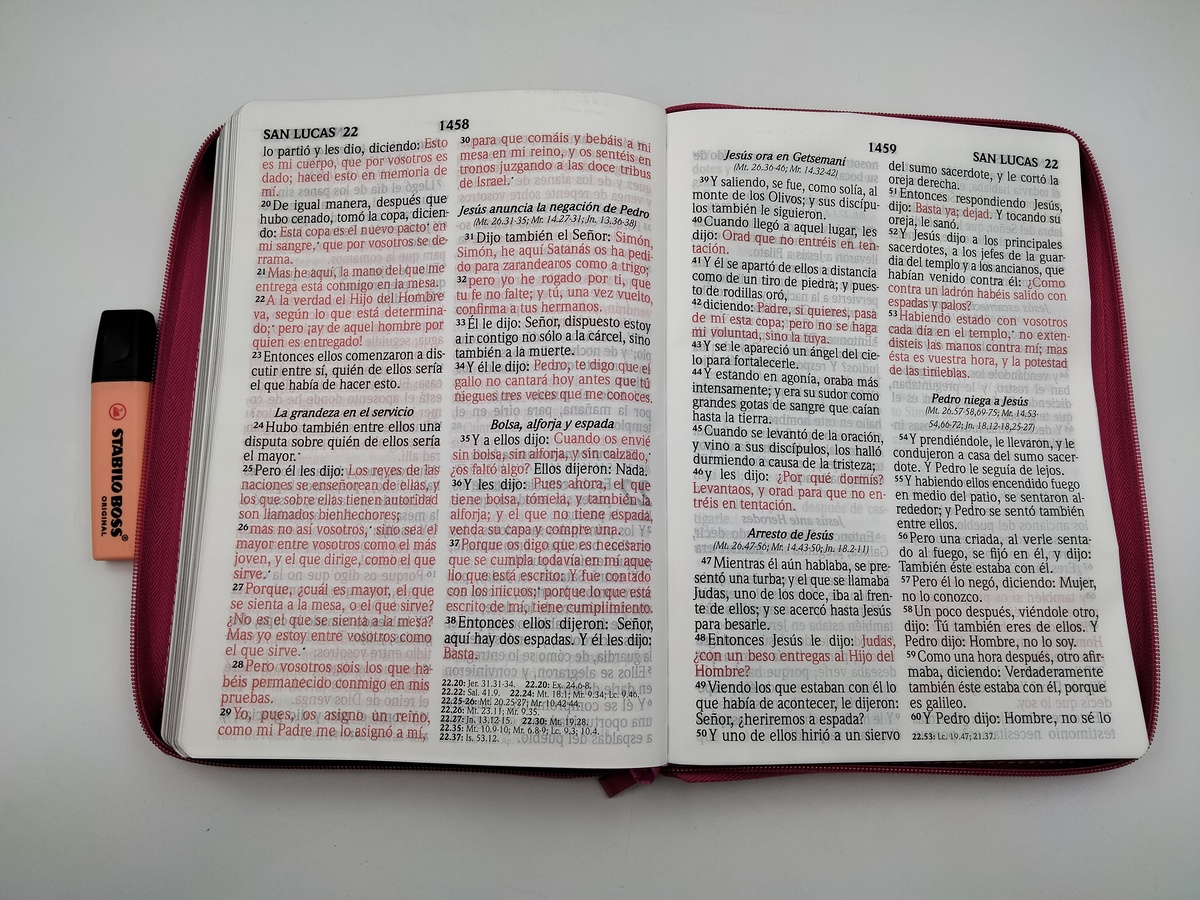 SAN LUCAS 22
1458
lo partió y les dio, diciendo: Esto
es mi cuerpo, que por vosotros es
dado; haced esto en memoria de
mí.
20 De igual manera, después que
hubo cenado, tomó la copa, dicien-
do: Esta copa es el nuevo pacto* en
mi sangre,* que por vosotros se de-
rrama.
21 Mas he aquí, la mano del que me
entrega está conmigo en la mesa.
22 A la verdad el Hijo del Hombre
va, según lo que está determina-
do;* pero ¡ay de aquel hombre por
quien es entregado!
23 Entonces ellos comenzaron a dis-
cutir entre sí, quién de ellos sería
el que había de hacer esto.
La grandeza en el servicio
24 Hubo también entre ellos una
disputa sobre quién de ellos sería
el mayor.*
25 Pero él les dijo: Los reyes de las
naciones se enseñorean de ellas, y
los que sobre ellas tienen autoridad
son llamados bienhechores;
26 mas no así vosotros,* sino sea el
mayor entre vosotros como el más
joven, y el que dirige, como el que
sirve.*
27 Porque, ¿cuál es mayor, el que
se sienta a la mesa, o el que sirve?
¿No es el que se sienta a la mesa?
Mas yo estoy entre vosotros como
el que sirve.*
28 Pero vosotros sois los que ha-
béis permanecido conmigo en mis
pruebas.
29 Yo, pues, os asigno un reino,
como mi Padre me lo asignó a mí,
30 para que comáis y bebáis a mi
mesa en mi reino, y os sentéis en
tronos juzgando a las doce tribus
de Israel.*
Jesús anuncia la negación de Pedro
(Mt. 26.31-35; Mr. 14.27-31; Jn. 13.36-38)
31 Dijo también el Señor: Simón,
Simón, he aquí Satanás os ha pedi-
do para zarandearos como a trigo;
32 pero yo he rogado por ti, que
tu fe no falte; y tú, una vez vuelto,
confirma a tus hermanos.
33 Él le dijo: Señor, dispuesto estoy
a ir contigo no sólo a la cárcel, sino
también a la muerte.
34 Y él le dijo: Pedro, te digo que el
gallo no cantará hoy antes que tú
niegues tres veces que me conoces.
Bolsa, alforja y espada
35 Y a ellos dijo: Cuando os envié
sin bolsa, sin alforja, y sin calzado,*
¿os faltó algo? Ellos dijeron: Nada.
36 Y les dijo: Pues ahora, el que
tiene bolsa, tómela, y también la
alforja; y el que no tiene espada,
venda su capa y compre una.
37 Porque os digo que es necesario
que se cumpla todavía en mí aque-
llo que está escrito: Y fue contado
con los inicuos;* porque lo que está
escrito de mí, tiene cumplimiento.
38 Entonces ellos dijeron: Señor,
aquí hay dos espadas. Y él les dijo:
Basta.
22.20: Jer. 31.31-34. 22.20: Ex. 24.6-8.
22.22: Sal. 41.9. 22.24: Mt. 18.1; Mr. 9.34; Lc. 9.46.
22.25-26: Mt. 20.25-27; Mr. 10.42-44.
22.26: Mt. 23.11; Mr. 9.35.
22.27: Jn. 13.12-15. 22.30: Mt. 19.28.
22.35: Mt. 10.9-10; Mr. 6.8-9; Lc. 9.3; 10.4.
22.37: Is. 53.12.
1459
SAN LUCAS 22
Jesús ora en Getsemaní
(Mt. 26.36-46; Mr. 14.32-42)
39 Y saliendo, se fue, como solía, al
monte de los Olivos; y sus discípu-
los también le siguieron.
40 Cuando llegó a aquel lugar, les
dijo: Orad que no entréis en ten-
tación.
41 Y él se apartó de ellos a distancia
como de un tiro de piedra; y pues-
to de rodillas oró,
42 diciendo: Padre, si quieres, pasa
de mí esta copa; pero no se haga
mi voluntad, sino la tuya.
43 Y se le apareció un ángel del cie-
lo para fortalecerle.
44 Y estando en agonía, oraba más
intensamente; y era su sudor como
grandes gotas de sangre que caían
hasta la tierra.
45 Cuando se levantó de la oración,
y vino a sus discípulos, los halló
durmiendo a causa de la tristeza;
46 y les dijo: ¿Por qué dormís?
Levantaos, y orad para que no en-
tréis en tentación.
Arresto de Jesús
(Mt. 26.47-56; Mr. 14.43-50; Jn. 18.2-11)
47 Mientras él aún hablaba, se pre-
sentó una turba; y el que se llamaba
Judas, uno de los doce, iba al fren-
te de ellos; y se acercó hasta Jesús
para besarle.
48 Entonces Jesús le dijo: Judas,
¿con un beso entregas al Hijo del
Hombre?
49 Viendo los que estaban con él lo
que había de acontecer, le dijeron:
Señor, ¿heriremos a espada?
50 Y uno de ellos hirió a un siervo
del sumo sacerdote, y le cortó la
oreja derecha.
51 Entonces respondiendo Jesús,
dijo: Basta ya; dejad. Y tocando su
oreja, le sanó.
52 Y Jesús dijo a los principales
sacerdotes, a los jefes de la guar-
dia del templo y a los ancianos, que
habían venido contra él: ¿Como
contra un ladrón habéis salido con
espadas y palos?
53 Habiendo estado con vosotros
cada día en el templo,* no exten-
disteis las manos contra mí; mas
ésta es vuestra hora, y la potestad
de las tinieblas.
Pedro niega a Jesús
(Mt. 26.57-58,69-75; Mr. 14.53-
54,66-72; Jn. 18.12-18,25-27)
54 Y prendiéndole, le llevaron, y le
condujeron a casa del sumo sacer-
dote. Y Pedro le seguía de lejos.
55 Y habiendo ellos encendido fuego
en medio del patio, se sentaron al-
rededor; y Pedro se sentó también
entre ellos.
56 Pero una criada, al verle senta-
do al fuego, se fijó en él, y dijo:
También éste estaba con él.
57 Pero él lo negó, diciendo: Mujer,
no lo conozco.
58 Un poco después, viéndole otro,
dijo: Tú también eres de ellos. Y
Pedro dijo: Hombre, no lo soy.
59 Como una hora después, otro afir-
maba, diciendo: Verdaderamente
también éste estaba con él, porque
es galileo.
60 Y Pedro dijo: Hombre, no sé lo
22.53: Lc. 19.47; 21.37.
STABILO BOSS®
ORIGINAL